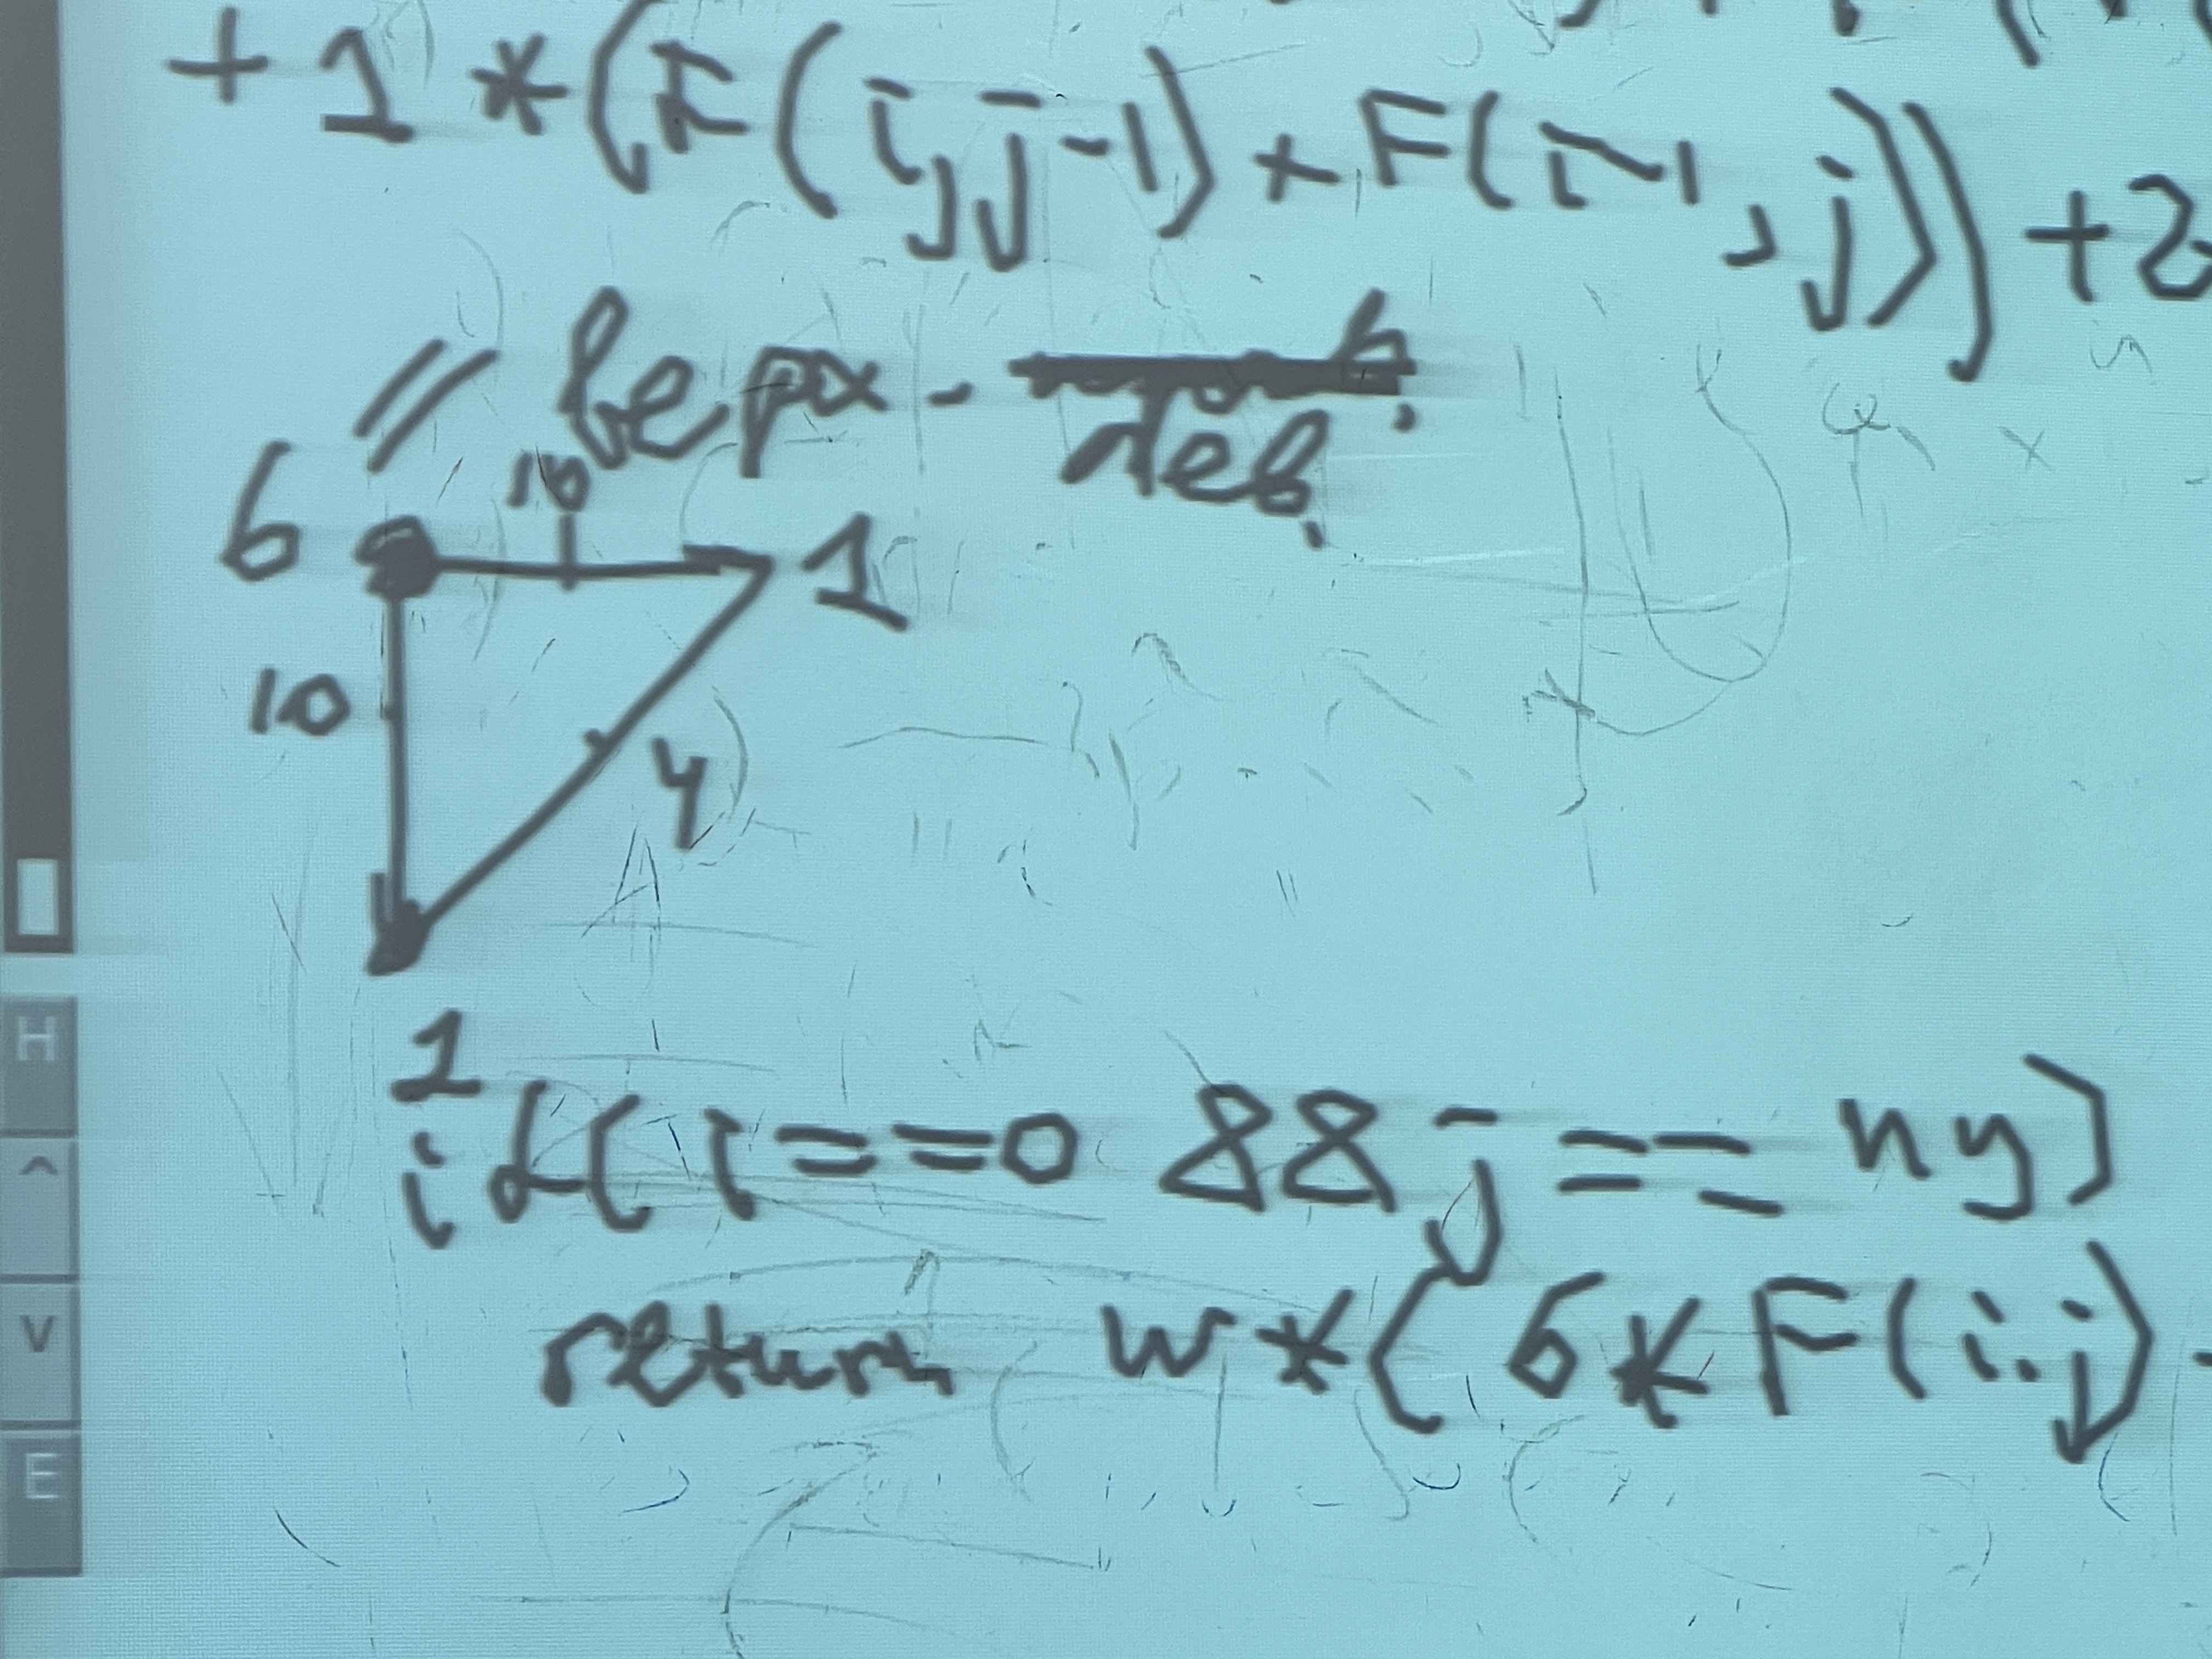 + 1 * (F(i,j-1) + F(i-1,j)) + 2
// верх - лев.
6 10 1
10
4
1
if(i==0 && j == ny)
return w*( 6*F(i,j)
H
^
v
E